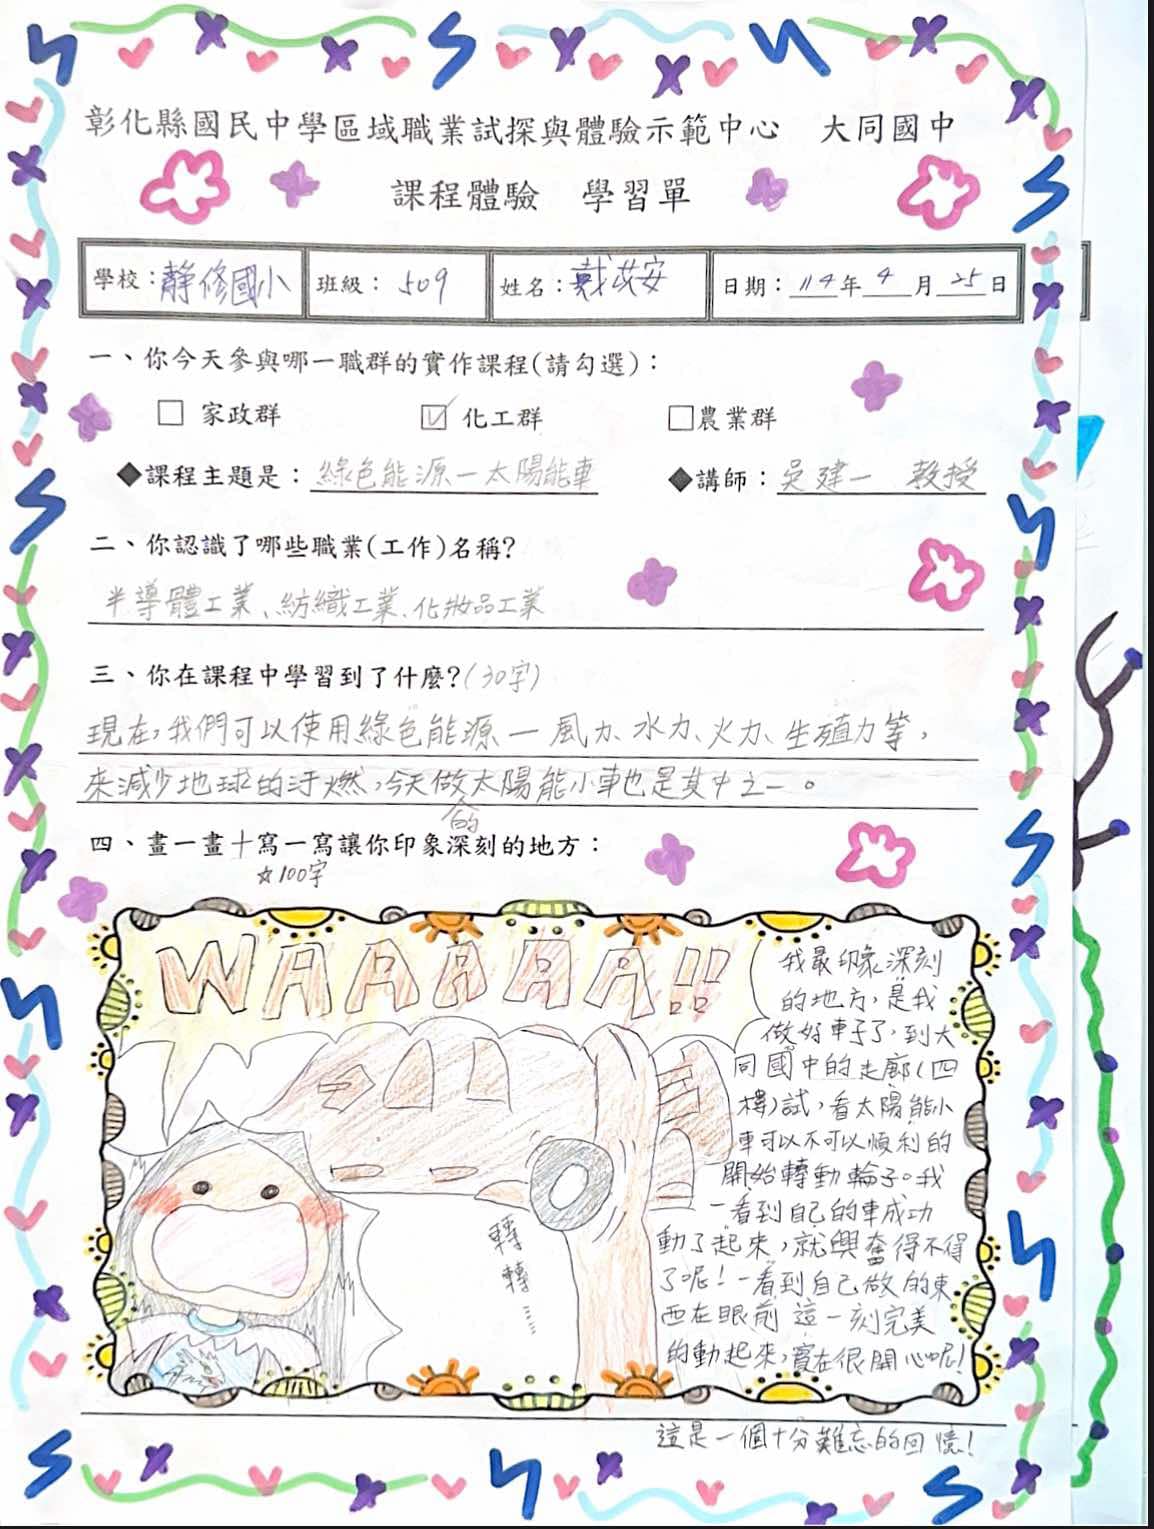 彰化縣國民中學區域職業試探與體驗示範中心 大同國中
課程體驗 學習單
學校：靜修國小 班級：509 姓名：戴苡安 日期：114年4月25日
一、你今天參與哪一職群的實作課程(請勾選)：
□ 家政群 ☑ 化工群 □農業群
◆課程主題是：綠色能源—太陽能車 ◆講師：吳建一 教授
二、你認識了哪些職業(工作)名稱?
半導體工業、紡織工業、化妝品工業
三、你在課程中學習到了什麼?(30字)
現在,我們可以使用綠色能源—風力、水力、火力、生殖力等,
來減少地球的汙燃,今天做的太陽能小車也是其中之一。
四、畫一畫＋寫一寫讓你印象深刻的地方：
☆100字
WAAAAA!!
我最印象深刻
的地方,是我
做好車子了,到大
同國中的走廊(四
樓)試,看太陽能小
車可以不可以順利的
開始轉動輪子。我
一看到自己的車成功
動了起來,就興奮得不得
了呢!一看到自己做的東
西在眼前這一刻完美
的動起來,實在很開心呢!
這是一個十分難忘的回憶!
轉
轉